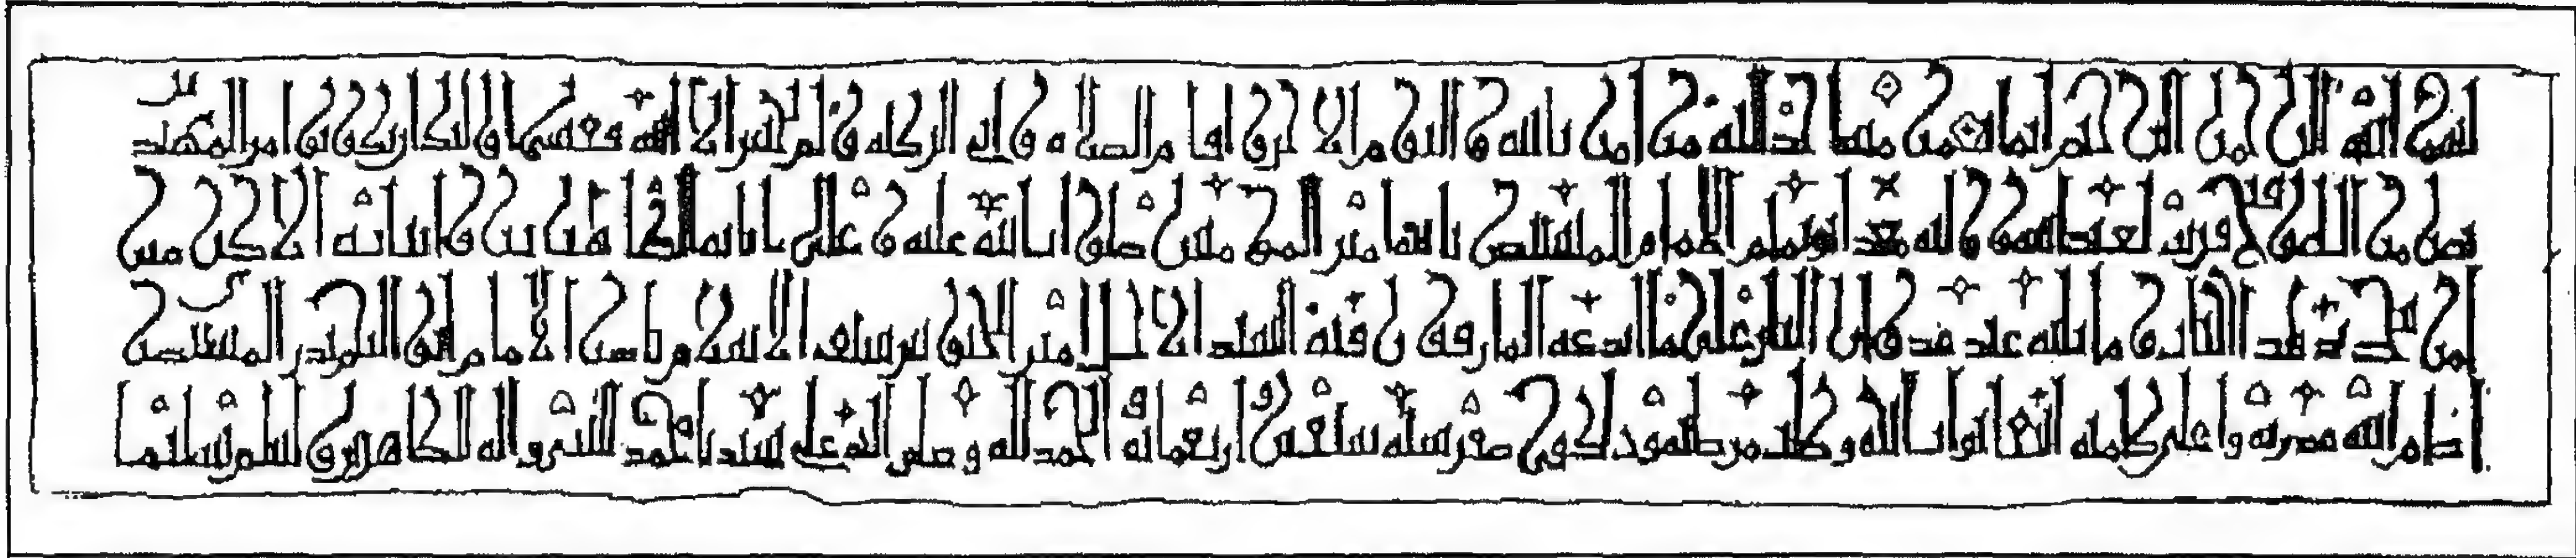 بسم الله الرحمن الرحيم انما يعمر مساجد الله من امن بالله واليوم الاخر واقام الصلاة واتى الزكاة ولم يخش الا الله فعسى اولئك ان يكونوا من المهتدين
نصر من الله وفتح قريب لعبد الله ووليه معد ابي تميم الامام المستنصر بالله امير المؤمنين صلوات الله عليه وعلى ابائه الطاهرين وابنائه الاكرمين
امر بتجديد هذا الباب وما يليه عند عدوان النار على ما ابدعه المارقون فيه السيد الاجل امير الجيوش سيف الاسلام ناصر الامام ابو النجم بدر المستنصري
ادام الله واعلى كلمته ابتغاء ثواب الله وطلب مرضاته وذلك في صفر سنة سبعين واربعمائة الحمد لله وصلى الله على سيدنا محمد النبي واله الطاهرين وسلم تسليما